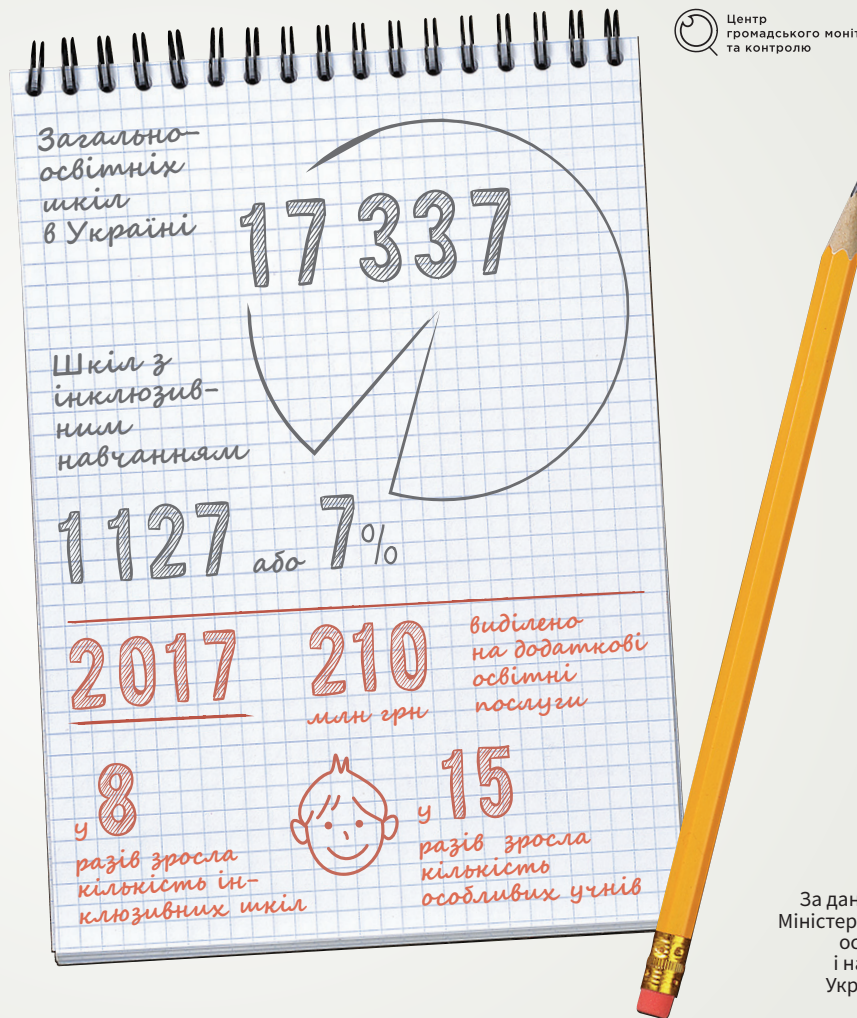 Центр
громадського
та контролю
Загально-
освітніх
шкіл
в Україні
17 337
Шкіл з
інклюзив-
ним
навчанням
1127 або 7%
2017
210
млн грн
виділено
на додаткові
освітні
послуги
у 8
разів зросла
кількість ін-
клюзивних шкіл
у 15
разів зросла
кількість
особливих учнів
За
і